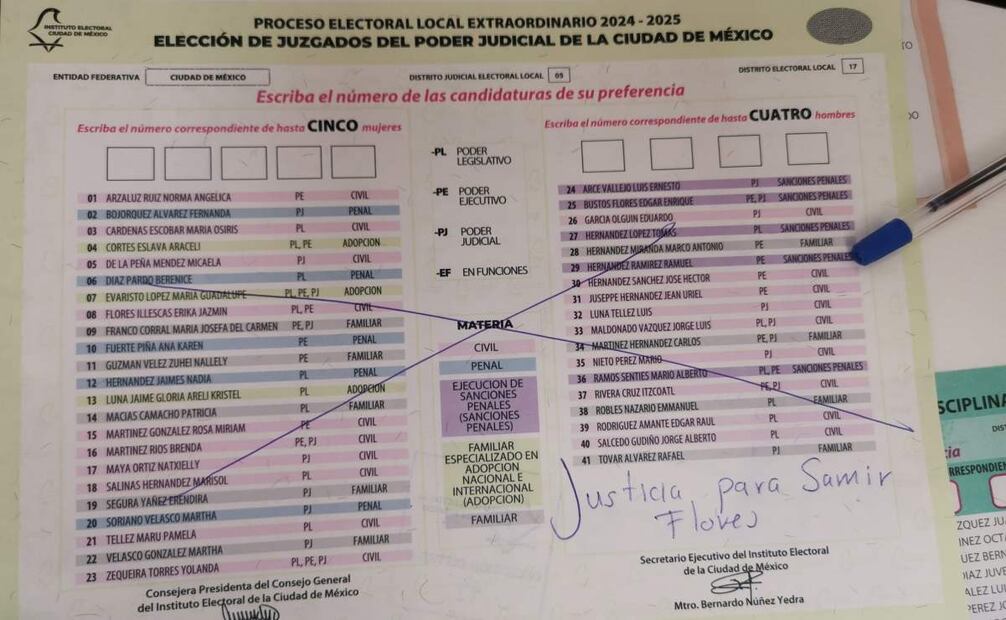 INSTITUTO ELECTORAL
CIUDAD DE MÉXICO
PROCESO ELECTORAL LOCAL EXTRAORDINARIO 2024 - 2025
ELECCIÓN DE JUZGADOS DEL PODER JUDICIAL DE LA CIUDAD DE MÉXICO
ENTIDAD FEDERATIVA CIUDAD DE MÉXICO DISTRITO JUDICIAL ELECTORAL LOCAL 09 DISTRITO ELECTORAL LOCAL 17
Escriba el número de las candidaturas de su preferencia
Escriba el número correspondiente de hasta CINCO mujeres
01 ARZALUZ RUIZ NORMA ANGELICA PE CIVIL
02 BOJORQUEZ ALVAREZ FERNANDA PJ PENAL
03 CARDENAS ESCOBAR MARIA OSIRIS PL CIVIL
04 CORTES ESLAVA ARACELI PL, PE ADOPCION
05 DE LA PEÑA MENDEZ MICAELA PJ CIVIL
06 DIAZ PARDO BERENICE PL PENAL
07 EVARISTO LOPEZ MARIA GUADALUPE PL, PE, PJ ADOPCION
08 FLORES ILLESCAS ERIKA JAZMIN PL, PE CIVIL
09 FRANCO CORRAL MARIA JOSEFA DEL CARMEN PE, PJ FAMILIAR
10 FUERTE PIÑA ANA KAREN PE PENAL
11 GUZMAN VELEZ ZUHEI NALLELY PE FAMILIAR
12 HERNANDEZ JAIMES NADIA PL PENAL
13 LUNA JAIME GLORIA ARELI KRISTEL PL ADOPCION
14 MACIAS CAMACHO PATRICIA PL FAMILIAR
15 MARTINEZ GONZALEZ ROSA MIRIAM PE CIVIL
16 MARTINEZ RIOS BRENDA PE, PJ CIVIL
17 MAYA ORTIZ NATXIELLY PJ CIVIL
18 SALINAS HERNANDEZ MARISOL PL CIVIL
19 SEGURA YAÑEZ ERENDIRA PJ FAMILIAR
20 SORIANO VELASCO MARTHA PJ PENAL
21 TELLEZ MARU PAMELA PL CIVIL
22 VELASCO GONZALEZ MARTHA PJ FAMILIAR
23 ZEQUEIRA TORRES YOLANDA PL, PE, PJ CIVIL
-PL PODER
LEGISLATIVO
-PE PODER
EJECUTIVO
-PJ PODER
JUDICIAL
-EF EN FUNCIONES
MATERIA
CIVIL
PENAL
EJECUCION DE
SANCIONES
PENALES
(SANCIONES
PENALES)
FAMILIAR
ESPECIALIZADO EN
ADOPCION
NACIONAL E
INTERNACIONAL
(ADOPCION)
FAMILIAR
Escriba el número correspondiente de hasta CUATRO hombres
24 ARCE VALLEJO LUIS ERNESTO PJ SANCIONES PENALES
25 BUSTOS FLORES EDGAR ENRIQUE PE, PJ SANCIONES PENALES
26 GARCIA OLGUIN EDUARDO PJ CIVIL
27 HERNANDEZ LOPEZ TOMAS PL SANCIONES PENALES
28 HERNANDEZ MIRANDA MARCO ANTONIO PE FAMILIAR
29 HERNANDEZ RAMIREZ RAMUEL PE SANCIONES PENALES
30 HERNANDEZ SANCHEZ JOSE HECTOR PE CIVIL
31 JUSEPPE HERNANDEZ JEAN URIEL PE CIVIL
32 LUNA TELLEZ LUIS PJ CIVIL
33 MALDONADO VAZQUEZ JORGE LUIS PL, PJ CIVIL
34 MARTINEZ HERNANDEZ CARLOS PE, PJ FAMILIAR
35 NIETO PEREZ MARIO PJ CIVIL
36 RAMOS SENTIES MARIO ALBERTO PL, PE SANCIONES PENALES
37 RIVERA CRUZ ITZCOATL PE, PJ CIVIL
38 ROBLES NAZARIO EMMANUEL PL FAMILIAR
39 RODRIGUEZ AMANTE EDGAR RAUL PL CIVIL
40 SALCEDO GUDIÑO JORGE ALBERTO PL CIVIL
41 TOVAR ALVAREZ RAFAEL PJ FAMILIAR
Justicia para Samir
Flores
Consejera Presidenta del Consejo General
del Instituto Electoral de la Ciudad de México
Secretario Ejecutivo del Instituto Electoral
de la Ciudad de México
Mtro. Bernardo Núñez Yedra